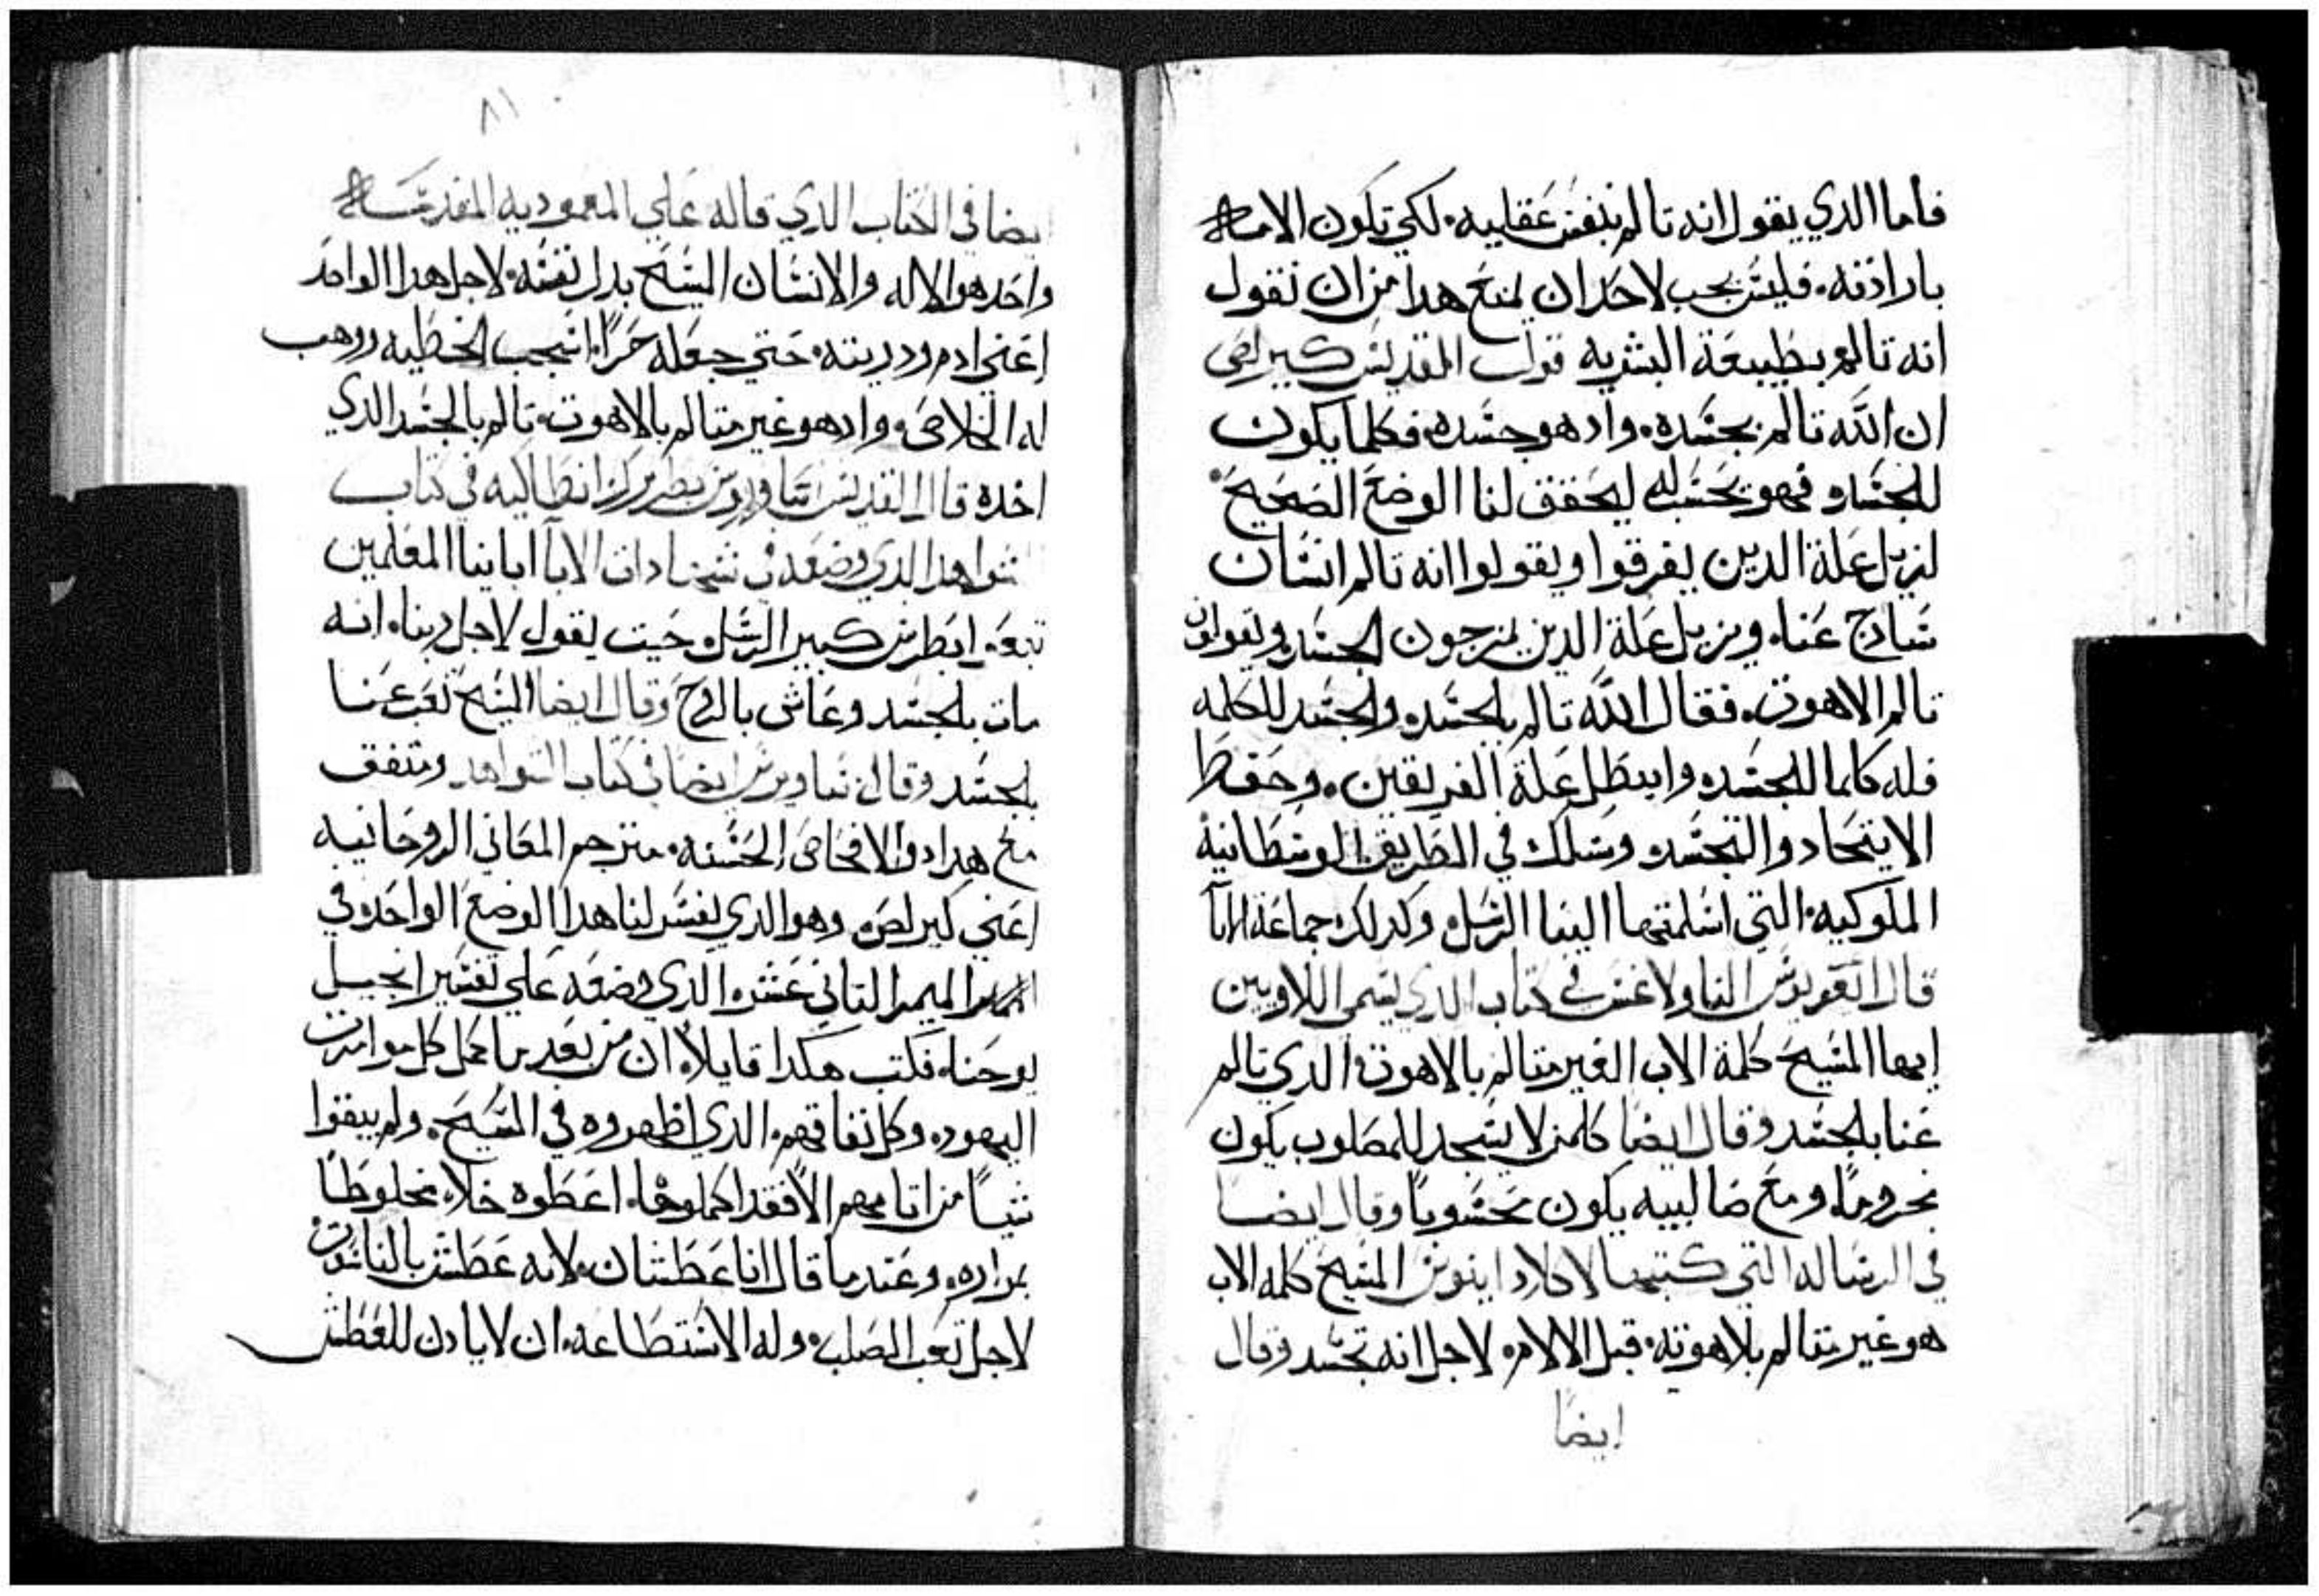 فاما الدي يقول انه تالم بنفس عقليه. لكي تكون الالامه
بارادته. فليس يجب لاحد ان يمنع هدا من ان نقول
انه تالم بطبيعة البشريه قول القديس كيرلص
ان الله تالم بجسده. واد هو جسده فكلما يكون
للجسد. فهو يحسب له ليحقق لنا الوضع الصحيح
لنزيل علة الدين يفرقوا ويقولوا انه تالم انسان
سادج عنا. ويزيل علة الدين يمزجون الجسد. ويقولون
تالم الاهوت. فقال الله تالم بالجسد. والجسد للكلمه
فله كلما للجسد. وابطل علة الفريقين. وحفظ
الايتحاد والتجسد. وسلك في الطريق الوسطانية
الملوكيه. التي اسلمتها الينا الرسل. وكدلك جماعة الابآ
قال اغريغوريوس التاولوغس في كتاب الدي يسمى اللاويين
ايها المسيح كلمة الاب الغير متالم بالاهوت. الدي تالم
عنا بالجسد وقال ايضا كلمن لا يسجد للمصلوب يكون
محروما. ومع صالبيه يكون محسوبا وقال ايضا
في الرساله التي كتبها لاكلاداينوس المسيح كلمه الاب
هو غير متالم بلاهوته. قبل الالام. لاجل انه تجسد وقال
ايضا
٨١
ايضا في الكتاب الدي قاله علي المعموديه المقدسه
واحد هو الاله والانسان المسيح بدل نفسه. لاجل هدا الواحد
اعني ادم ودريته. حتي جعله حرا. من الخطيه ووهب
له الخلاص. واد هو غير متالم بالاهوت. تالم بالجسد الدي
اخده قال القديس ساويرس بطريرك انطاكيه في كتاب
الدي وضعه في شهادات الابآ اباينا المعلمين
تبعه. ابطرس كبير الرسل. حيت يقول لاجل ربنا. انه
مات بالجسد وعاش بالروح وقال ايضا المسيح تعب عنا
بالجسد وقال ساويرس ايضا في كتاب ومتفق
مع هدا دو الافحاص الحسنه. مترجم المعاني الروحانيه
اعني كيرلص. وهو الدي يفسر لنا هدا الوضع الواحد. في
الميمر التاني عشر. الدي وضعه علي تفسير انجيل
يوحنا. فكتب هكدا قايلا. ان من بعد ما كمل كل موامرات
اليهود. وكل نفاقهم. الدي اظهروه في المسيح. ولم يبقوا
شيا من اتامهم الا فقد اكملوها. اعطوه خلا. مخلوطا
بمراره. وعند ما قال انا عطشان. لانه عطش بالناسوت
لاجل تعب الصلب. وله الاستطاعه. ان لا يادن للعطش